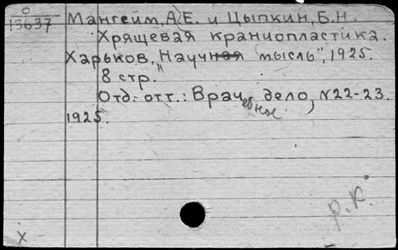 О
13637
Мангейм, А.Е. и Цыпкин, Б.Н.
Хрящевая краниопластика.
Харьков, "Научная мысль", 1925.
8 стр.
Отд. отт.: Врачебное дело, №22-23.
1925.
р.к.
X